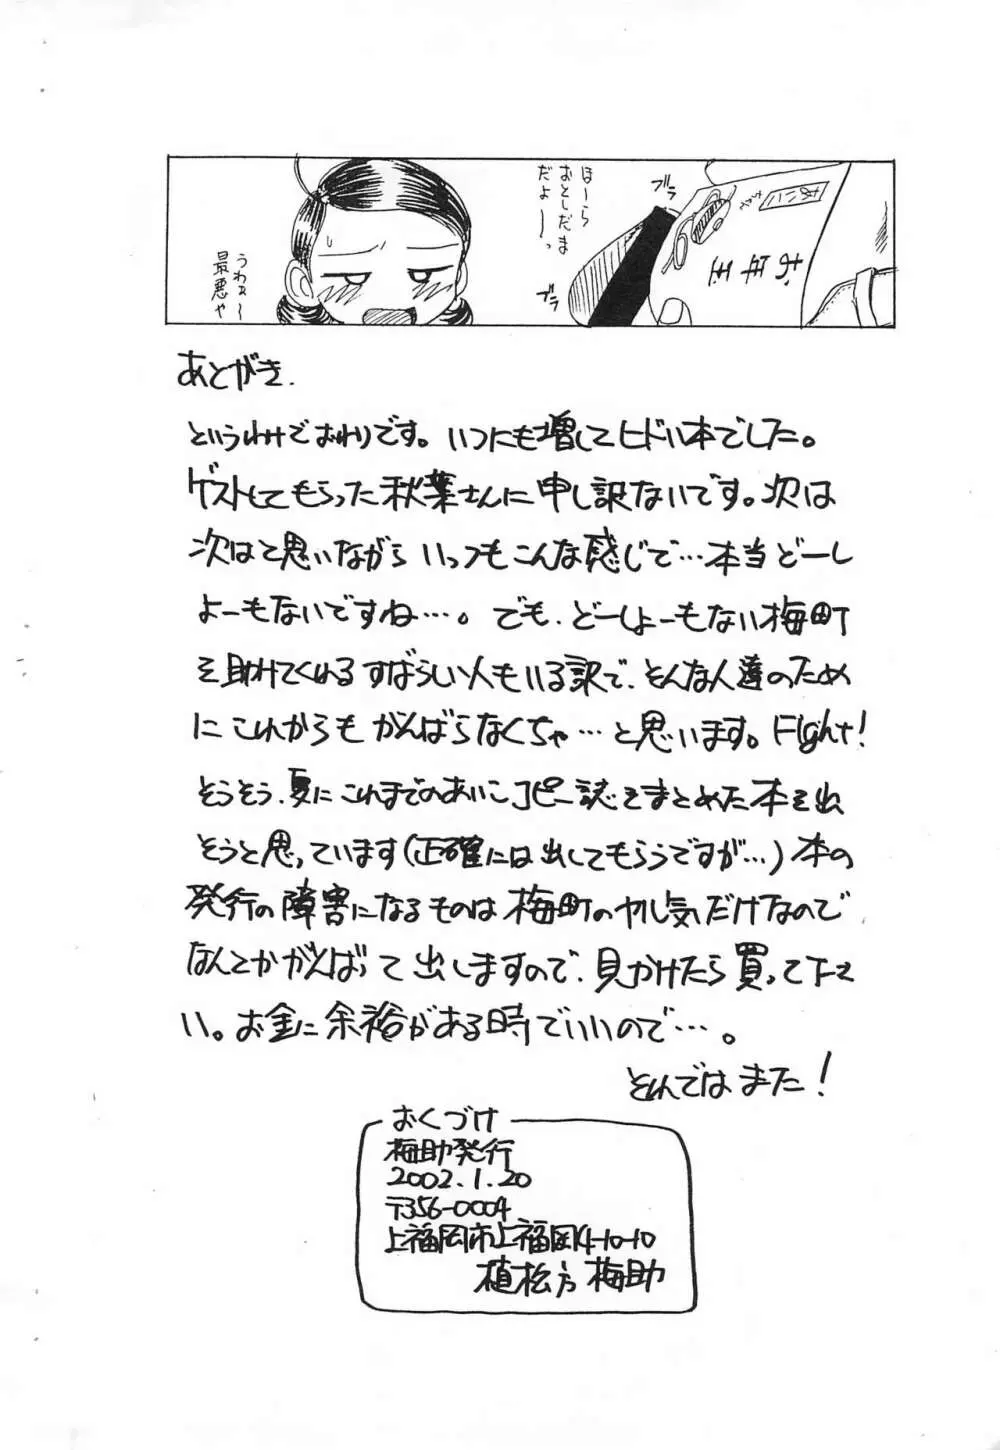 ほーら
おとしだま
だよ〜っ
ブラ
ブラ
あいこ
ちゃん
うわぁ〜
最悪や
あとがき.
というわけでおわりです。いつにも増してヒドい本でした。
ゲストしてもらった秋葉さんに申し訳ないです。次は
次はと思いながらいっつもこんな感じで…本当どーし
よーもないですね…。でも、どーしよーもない梅町
を助けてくれるすばらしい人もいる訳で、そんな人達のため
にこれからもがんばらなくちゃ…と思います。Fight!
そうそう、夏にこれまでのあいこコピー誌をまとめた本を出
そうと思っています(正確には出してもらうですが…)本の
発行の障害になるものは梅町のヤル気だけなので
なんとかがんばって出しますので、見かけたら買って下さ
い。お金に余裕がある時でいいので…。
それではまた!
おくづけ
梅助発行
2002.1.20
〒356-0004
上福岡市上福岡4-10-10
植松方 梅助